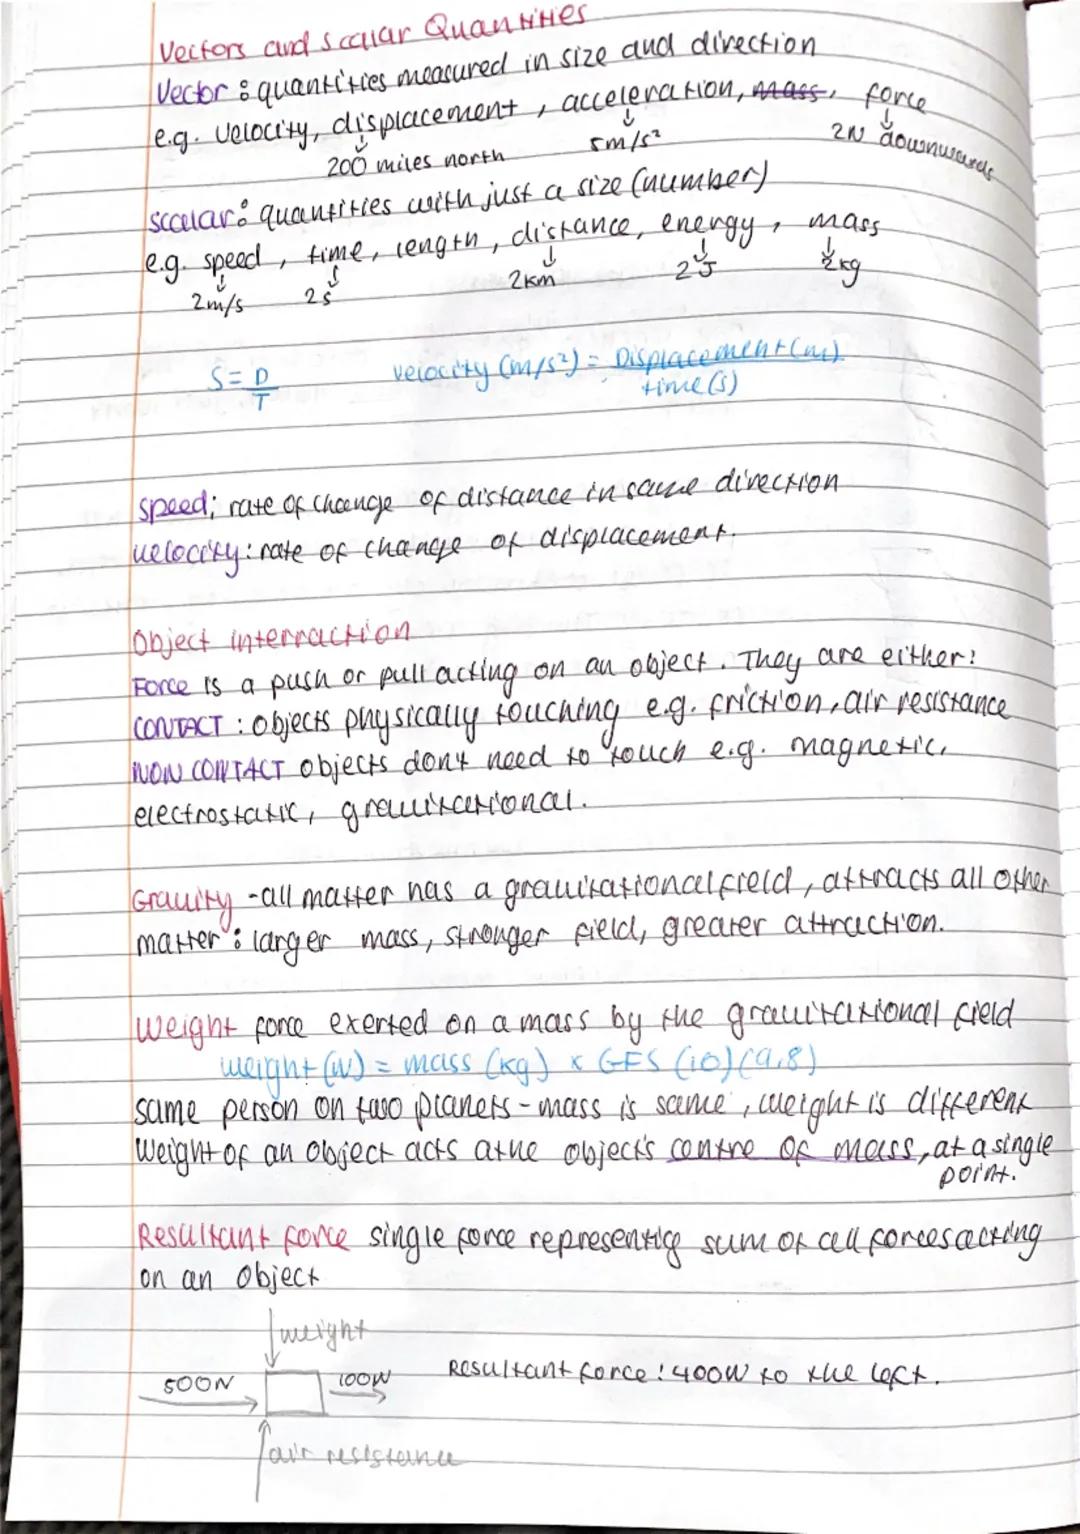 Vectors and scalar Quantities
Vector : quantities measured in size and direction
e.g. velocity, displacement, acceleration, mass, force
200 miles north 5m/s² 2N downwards
scalar: quantities with just a size (number)
e.g. speed, time, length, distance, energy, mass
2m/s 2s 2km 2J 2kg
S = D velocity (m/s²) = Displacement (m)
T time (s)
speed; rate of change of distance in same direction
velocity: rate of change of displacement.
Object interraction
Force is a push or pull acting on an object. They are either:
CONTACT : objects physically touching e.g. friction, air resistance
NON CONTACT objects don't need to touch e.g. magnetic,
electrostatic, gravitational.
Gravity - all matter has a gravitational field, attracts all other
matter : larger mass, stronger field, greater attraction.
Weight force exerted on a mass by the gravitational field
weight (N) = mass (kg) x GFS (10) (9.8)
same person on two planets - mass is same, weight is different
Weight of an object acts at the object's centre of mass, at a single
point.
Resultant force single force representig sum of all forces acting
on an object
weight
500N 100N Resultant force : 400N to the left.
air resistance